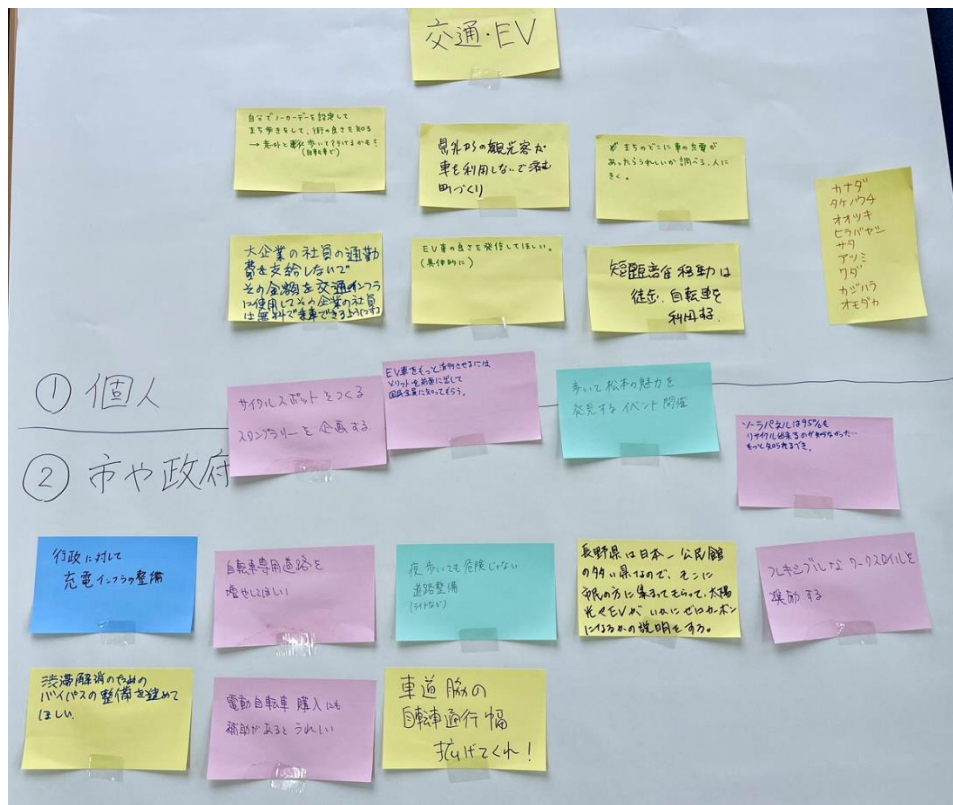 交通・EV
自分でノーカーデーを設定して
まち歩きをして、街の良さを知る
→ 意外と楽に歩いて行けるかも！
(自転車で)
県外からの観光客が
車を利用しないで済む
町づくり
まちのどこに車の充電が
あったらうれしいか調べる、人に
きく。
カナダ
タケノウチ
オオツキ
ヒラバヤシ
サタ
アツミ
ワダ
カジハラ
オモダカ
大企業の社員の通勤
費を支給しないで
その金額を交通インフラ
に使用してその企業の社員
は無料で乗車できるようにする
EV車の良さを発信してほしい。
(具体的に)
短距離移動は
徒歩、自転車を
利用する。
① 個人
サイクルスポットをつくる
スタンプラリーを企画する
EV車をもっと普及させるには
メリットを前面に出して
国民全員に知ってもらう。
歩いて松本の魅力を
発見するイベント開催
ソーラパネルは95%も
リサイクル出来るのが知らなかった…
もっと知らせるべき。
② 市や政府
行政に対して
充電インフラの整備
自転車専用道路を
増やしてほしい
夜歩いても危険じゃない
道路整備
(ライトなど)
長野県は日本一公民館
の多い県なので、そこに
市民の方に集まってもらって、太陽
光やEVが、いかにゼロカーボン
になるかの説明をする。
フレキシブルなワークスタイルを
奨励する
渋滞解消のための
バイパスの整備を進めて
ほしい。
電動自転車購入にも
補助があるとうれしい
車道脇の
自転車通行幅
拡げてくれ！